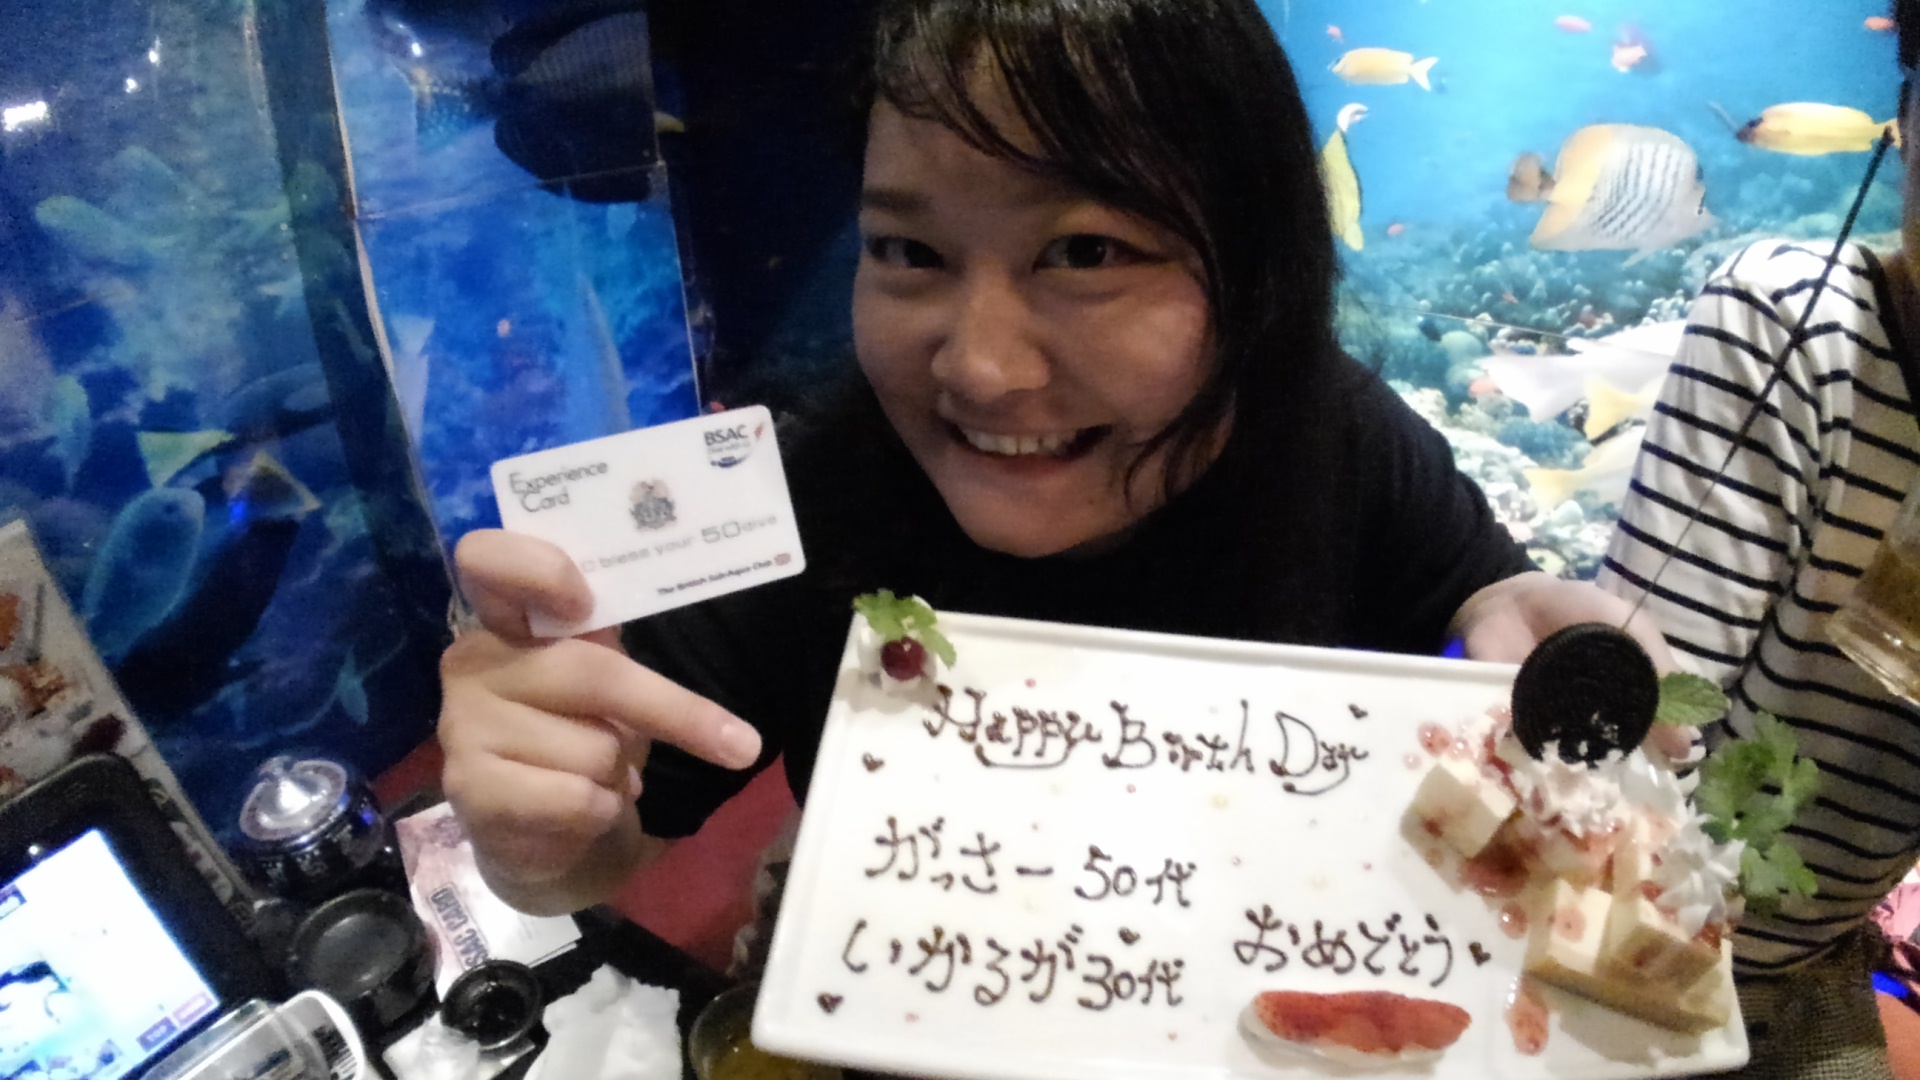 BSAC
Experience
Card
bless your 50 dive
The British Sub-Aqua Club
Happy Birth Day
がっさー 50代
いかるが 30代
おめでとう
BSAC CARD